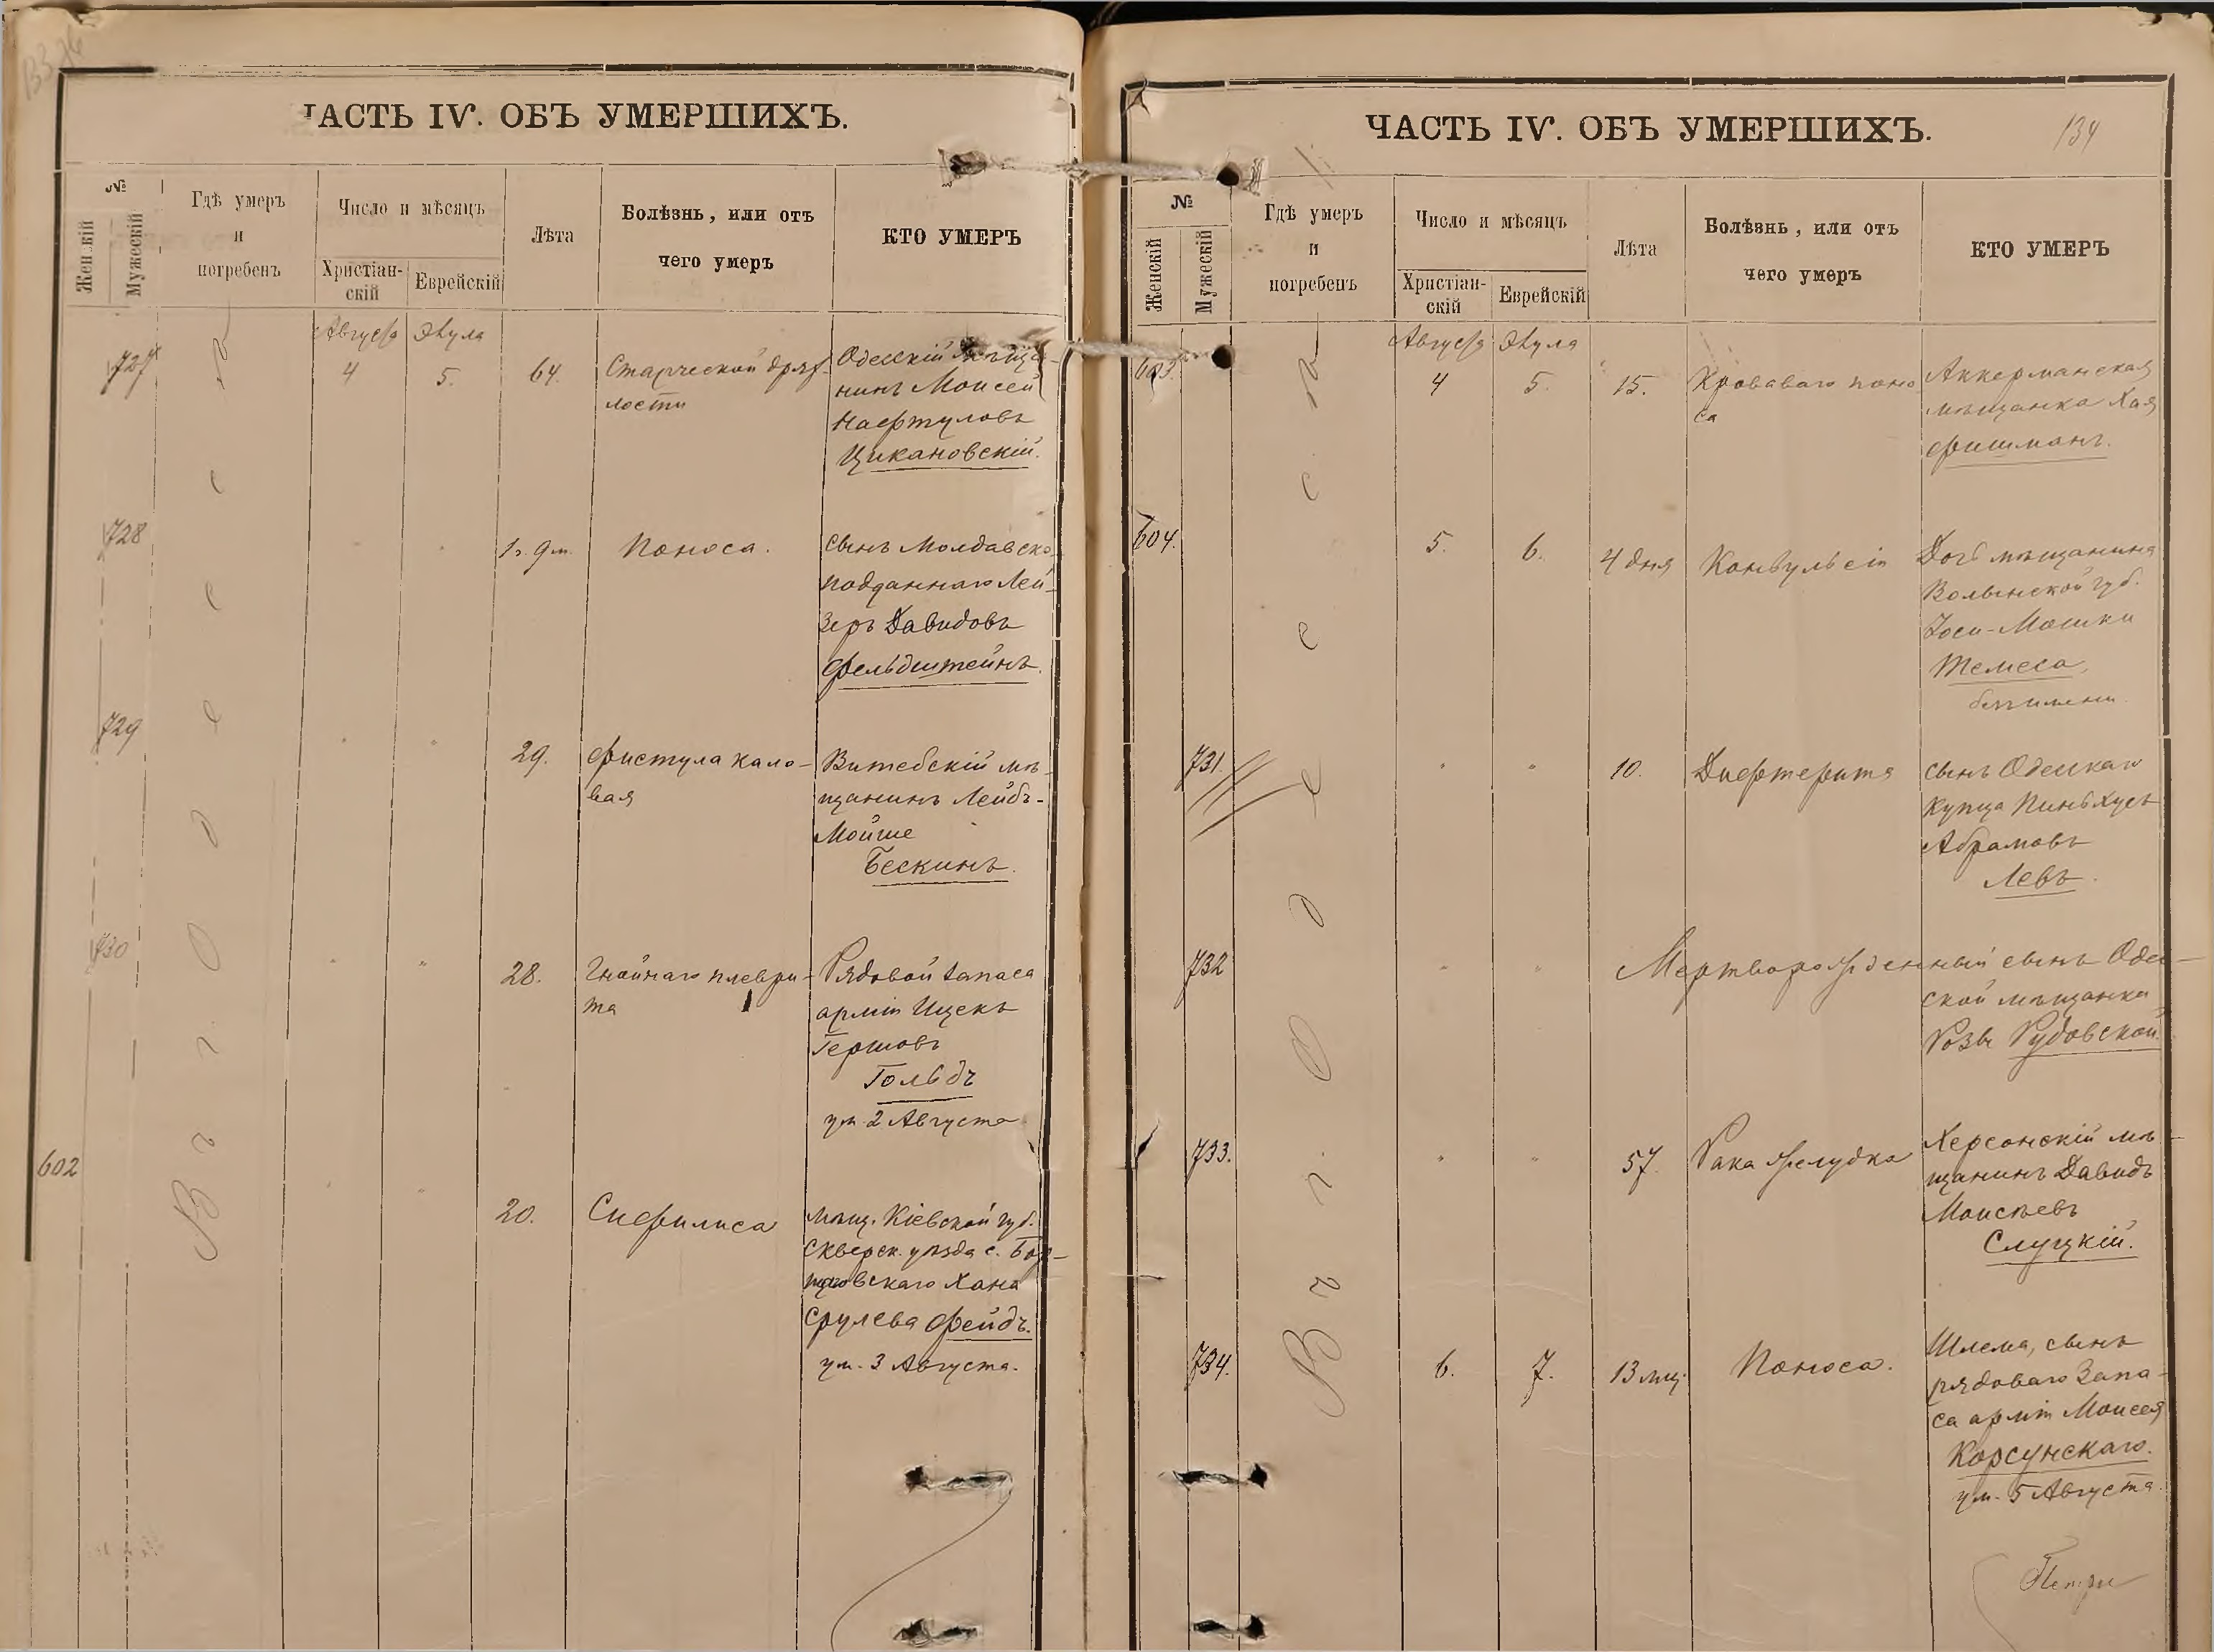 ЧАСТЬ IV. ОБЪ УМЕРШИХЪ.
№
Женскій
Мужескій
Гдѣ умеръ
и
погребенъ
Число и мѣсяцъ
Христіан-
скій
Еврейскій
Лѣта
Болѣзнь, или отъ
чего умеръ
КТО УМЕРЪ
Въ г. Одессе
Августа
Элула
727
4
5.
64.
Старческой дрях-
лости
Одесскій мѣща-
нинъ Моисей
Нафтуловъ
Цикановскій.
728
1г. 9м.
Поноса.
сынъ Молдавско
подданнаго Лей-
зеръ Давидовъ
Фельдштейнъ.
729
29.
Фистула кало-
вая
Витебскій мѣ-
щанинъ Лейбъ-
Мойше
Бескинъ.
730
28.
Гнойнаго плеври-
та
Рядовой запаса
арміи Ицекъ
Гершовъ
Гольдъ
ум. 2 Августа
602
20.
Сифилиса
мѣщ. Кіевской губ.
Сквирск. уѣзда с.
Хана
Срулева Фейдъ.
ум. 3 Августа.
ЧАСТЬ IV. ОБЪ УМЕРШИХЪ.
134
№
Женскій
Мужескій
Гдѣ умеръ
и
погребенъ
Число и мѣсяцъ
Христіан-
скій
Еврейскій
Лѣта
Болѣзнь, или отъ
чего умеръ
КТО УМЕРЪ
Въ г. Одессе
Августа
Элула
603.
4
5.
15.
Кроваваго поно
са
Аккерманская
мѣщанка Хая
Фишманъ.
604.
5.
6.
4 дня
Конвульсіи
Дочь мѣщанина
Волынской губ.
Іоси-Мошки
Темеса,
безъ имени.
731.
10.
Дифтерита
сынъ Одесскаго
купца Пинхусъ
Абрамовъ
Левъ.
732
Мертворожденный сынъ Одес-
ской мѣщанки
Розы Рудовской.
733.
57.
Рака желудка
Херсонскій мѣ-
щанинъ Давидъ
Моисѣевъ
Слуцкій.
734.
6.
7.
13 мц.
Поноса.
Шлема, сынъ
рядоваго запа-
са арміи Моисея
Корсунскаго.
ум. 5 Августа.